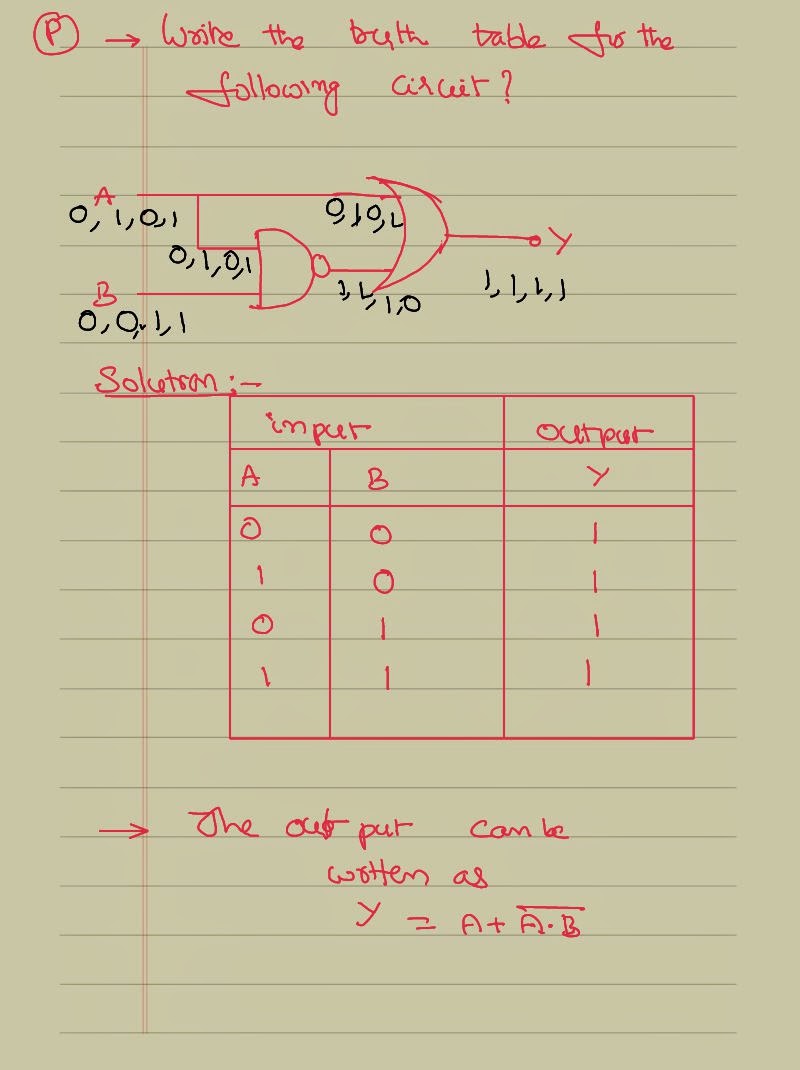 P → Write the truth table for the
following circuit?
A
0, 1, 0, 1
0, 1, 0, 1
0, 1, 0, 1
Y
B
0, 0, 1, 1
1, 1, 1, 0
1, 1, 1, 1
Solution :-
input output
A B Y
0 0 1
1 0 1
0 1 1
1 1 1
→ The out put can be
written as
Y = A + \overline{A·B}